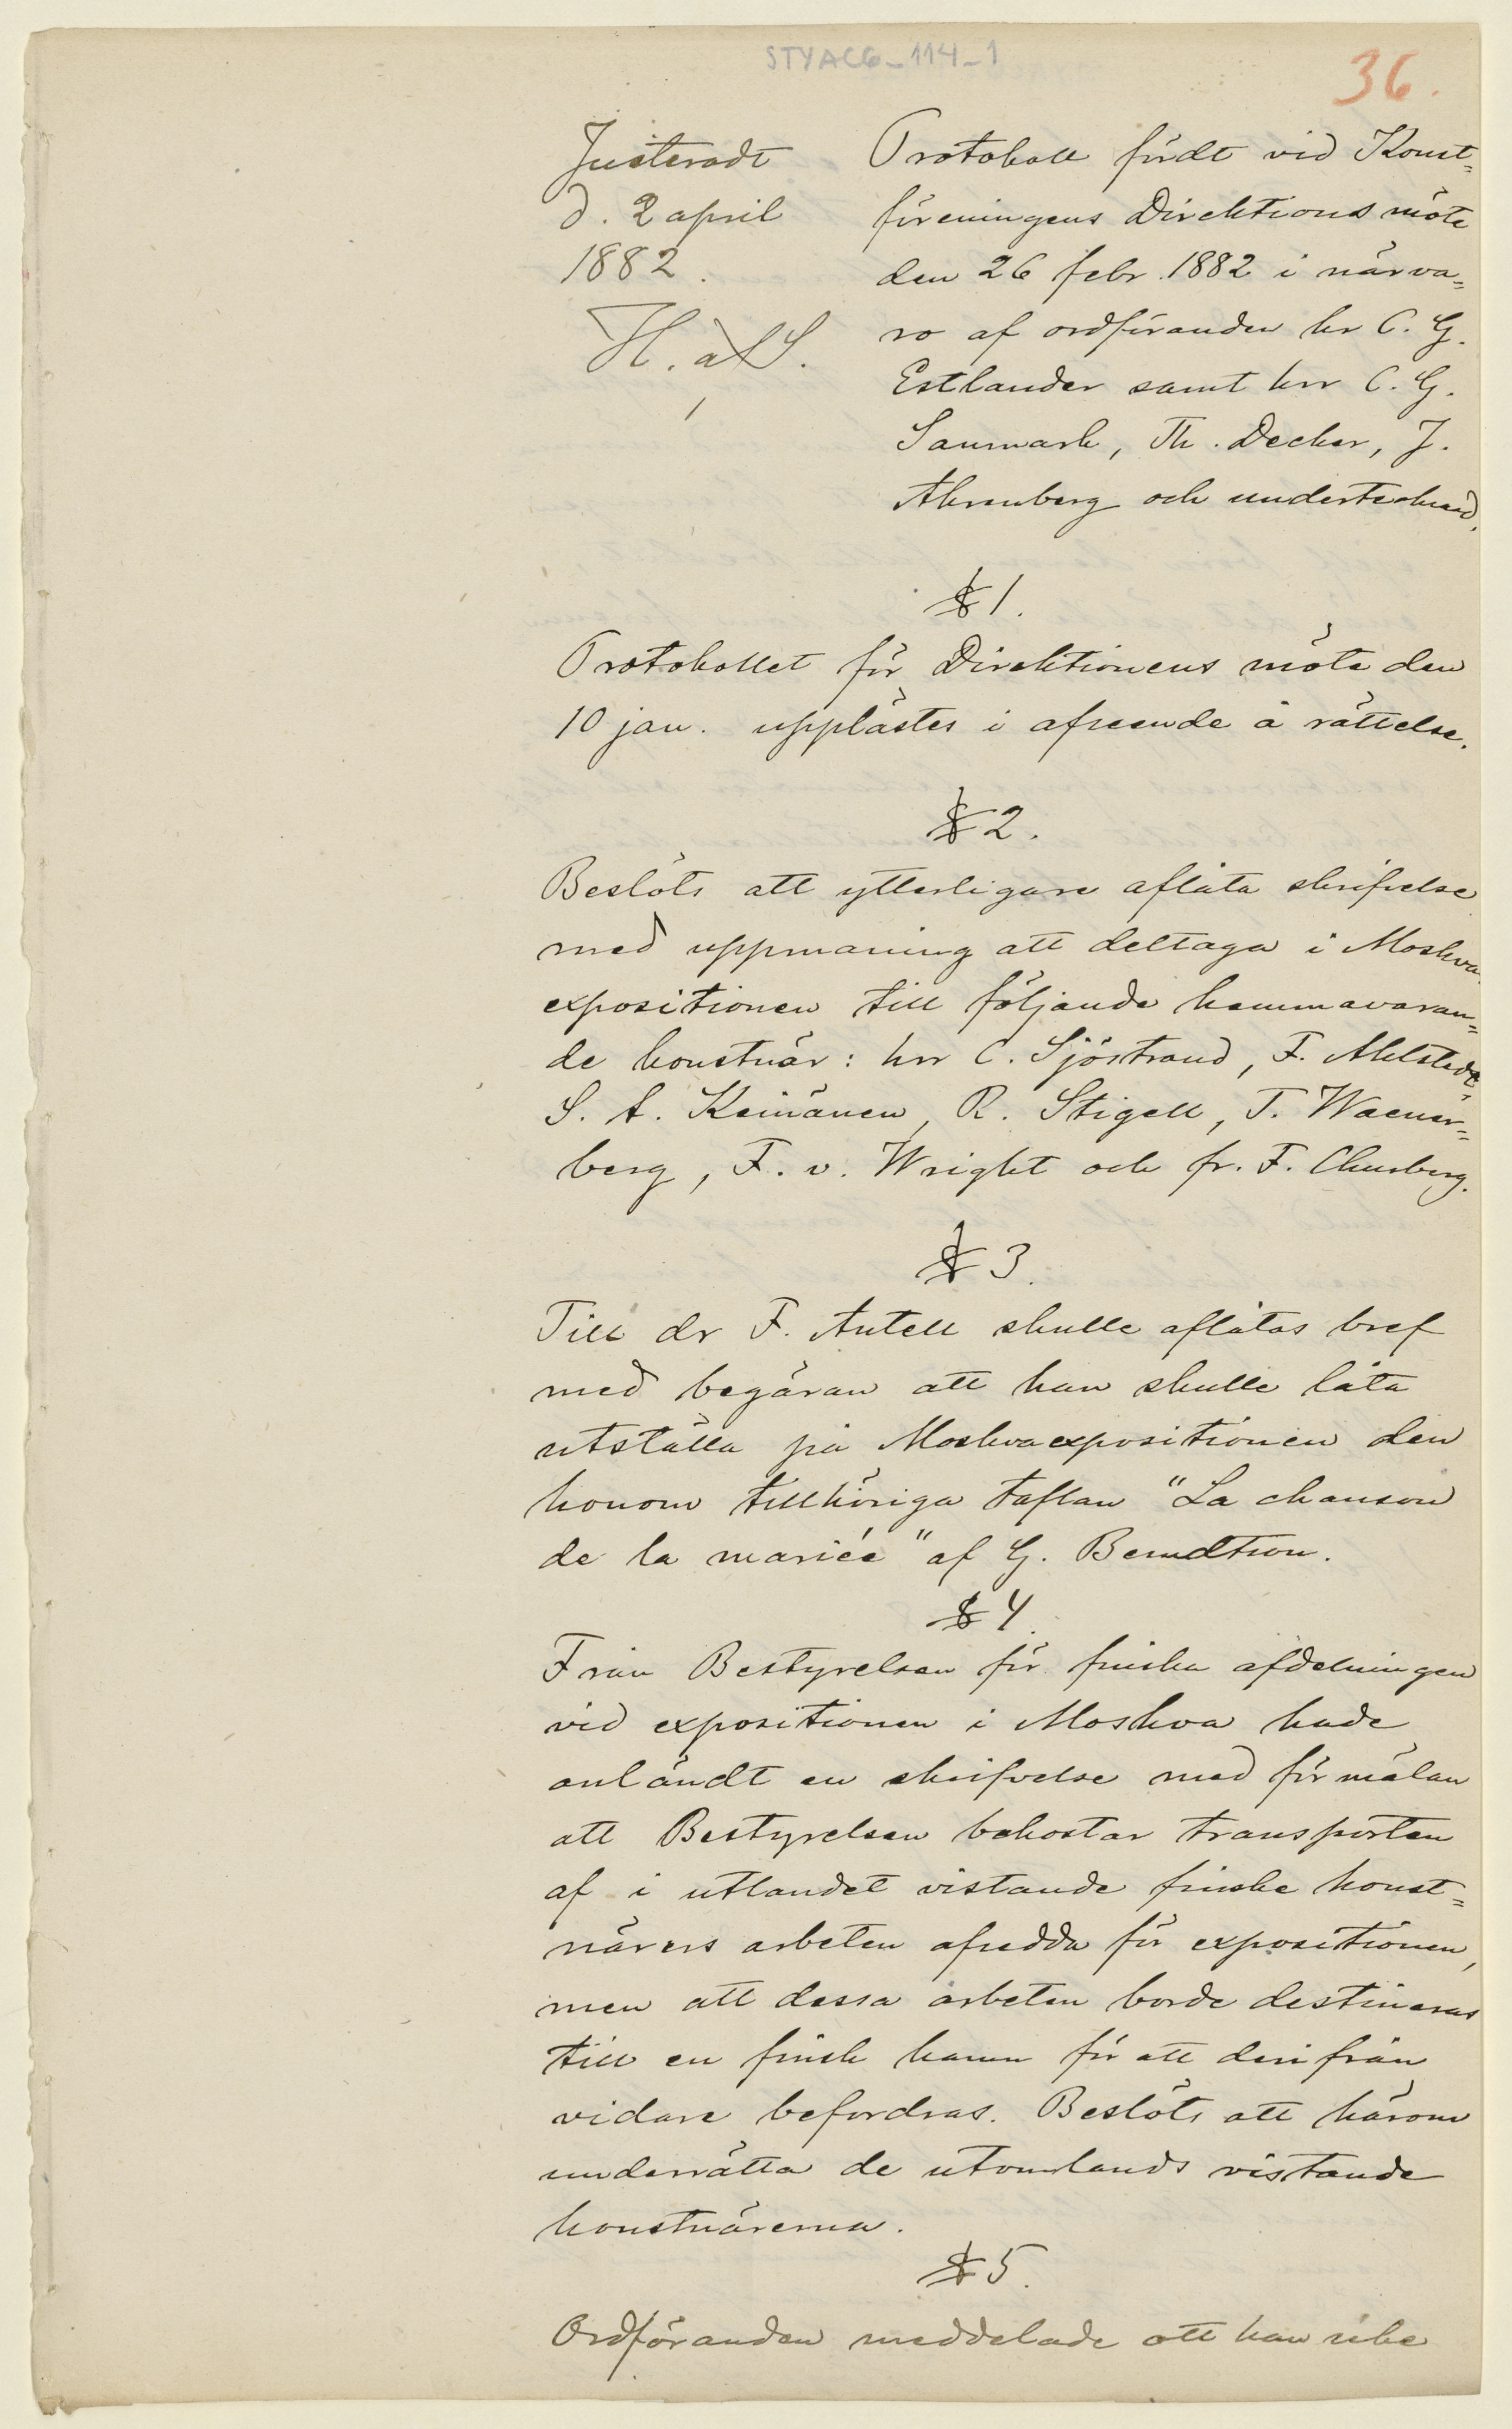 STYAC6_114_1
36.
Justeradt
d. 2 april
1882.
H. af S.
Protokoll fördt vid Konst=
föreningens Direktions möte
den 26 febr. 1882 i närva=
ro af ordföranden hr C. G.
Estlander samt hrr C. G.
Sanmark, Th. Decker, J.
Ahrenberg och undertecknad.
§ 1.
Protokollet för Direktionens möte den
10 jan. upplästes i afseende å rättelse.
§ 2.
Beslöts att ytterligare aflåta skrifvelse
med uppmaning att deltaga i Moskva
expositionen till följande hemmavaran=
de konstnär: hrr C. Sjöstrand, F. Ahlstedt,
S. A. Keinänen, R. Stigell, T. Waener=
berg, F. v. Wright och fr. F. Churberg.
§ 3.
Till dr F. Antell skulle aflåtas bref
med begäran att han skulle låta
utställa på Moskvaexpositionen den
honom tillhöriga taflan "La chanson
de la mariée" af G. Berndtson.
§ 4.
Från Bestyrelsen för finska afdelningen
vid expositionen i Moskva hade
anländt en skrifvelse med förmälan
att Bestyrelsen bekostar transporten
af i utlandet vistande finske konst=
närers arbeten afsedda för expositionen,
men att dessa arbeten borde destineras
till en finsk hamn för att derifrån
vidare befordras. Beslöts att härom
underrätta de utomlands vistande
konstnärerna.
§ 5.
Ordföranden meddelade att han icke